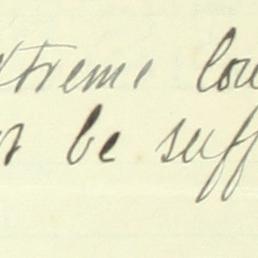 xtreme lou
be suff